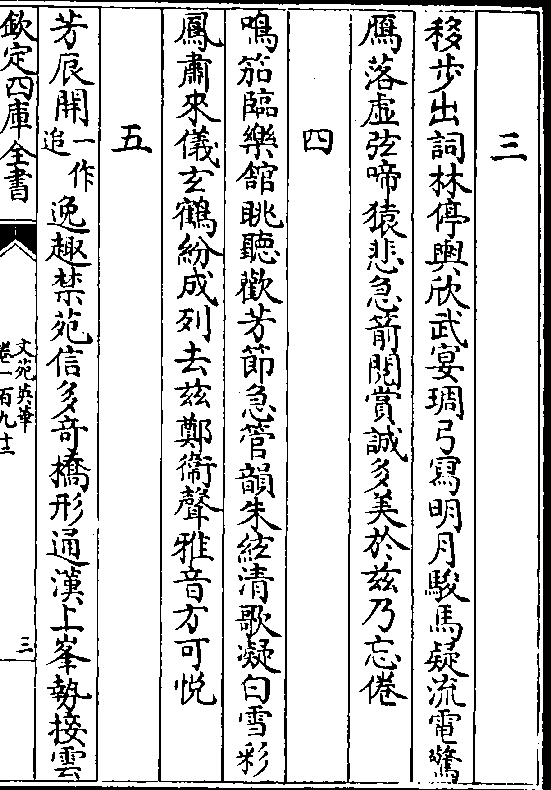 三
移步出詞林停輿欣武宴琱弓寫明月駿馬疑流電驚
鴈落虛弦啼猿悲急箭閲賞誠多美於兹乃忘倦
四
鳴笳臨樂舘眺聽歡芳節急管韻朱絃清歌凝白雪彩
鳳肅來儀玄鶴紛成列去兹鄭衞聲雅音方可悦
五
芳辰開一作追逸趣禁苑信多竒橋形通漢上峯勢接雲
欽定四庫全書
文苑英華
卷一百九十三
三